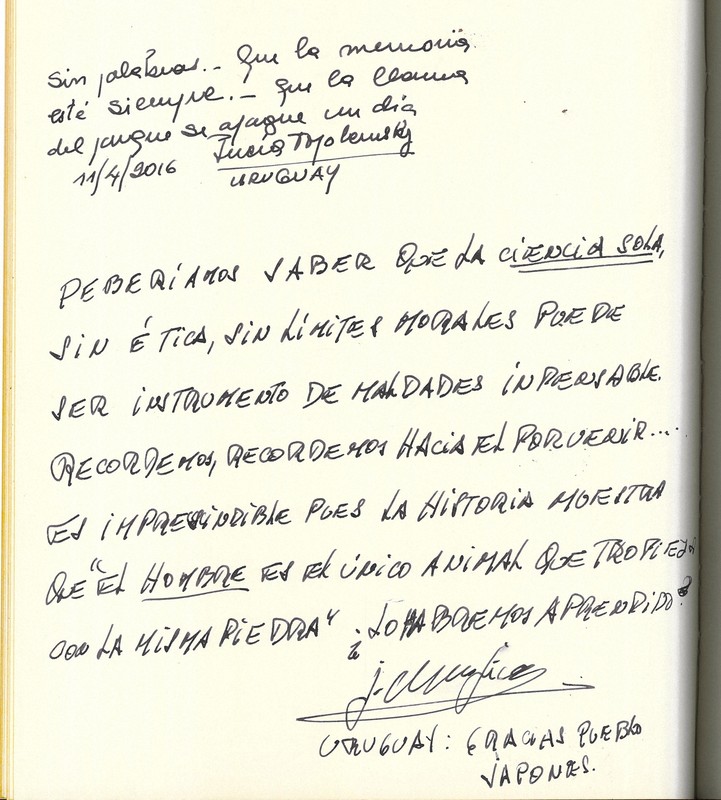 Sin palabras.- Que la memoria
esté siempre.- que la llama
del parque se apague un día
11/4/2016 Lucía Topolansky
URUGUAY
DEBERÍAMOS SABER QUE LA CIENCIA SOLA,
SIN ÉTICA, SIN LÍMITES MORALES PUEDE
SER INSTRUMENTO DE MALDADES INPENSABLE.
RECORDEMOS, RECORDEMOS HACIA EL PORVENIR...
ES IMPRESINDIBLE PUES LA HISTORIA MUESTRA
QUE "EL HOMBRE ES EL ÚNICO ANIMAL QUE TROPIEZA
CON LA MISMA PIEDRA" ¿LO HABREMOS APRENDIDO?
J. Mujica
URUGUAY: GRACIAS PUEBLO
JAPONES.